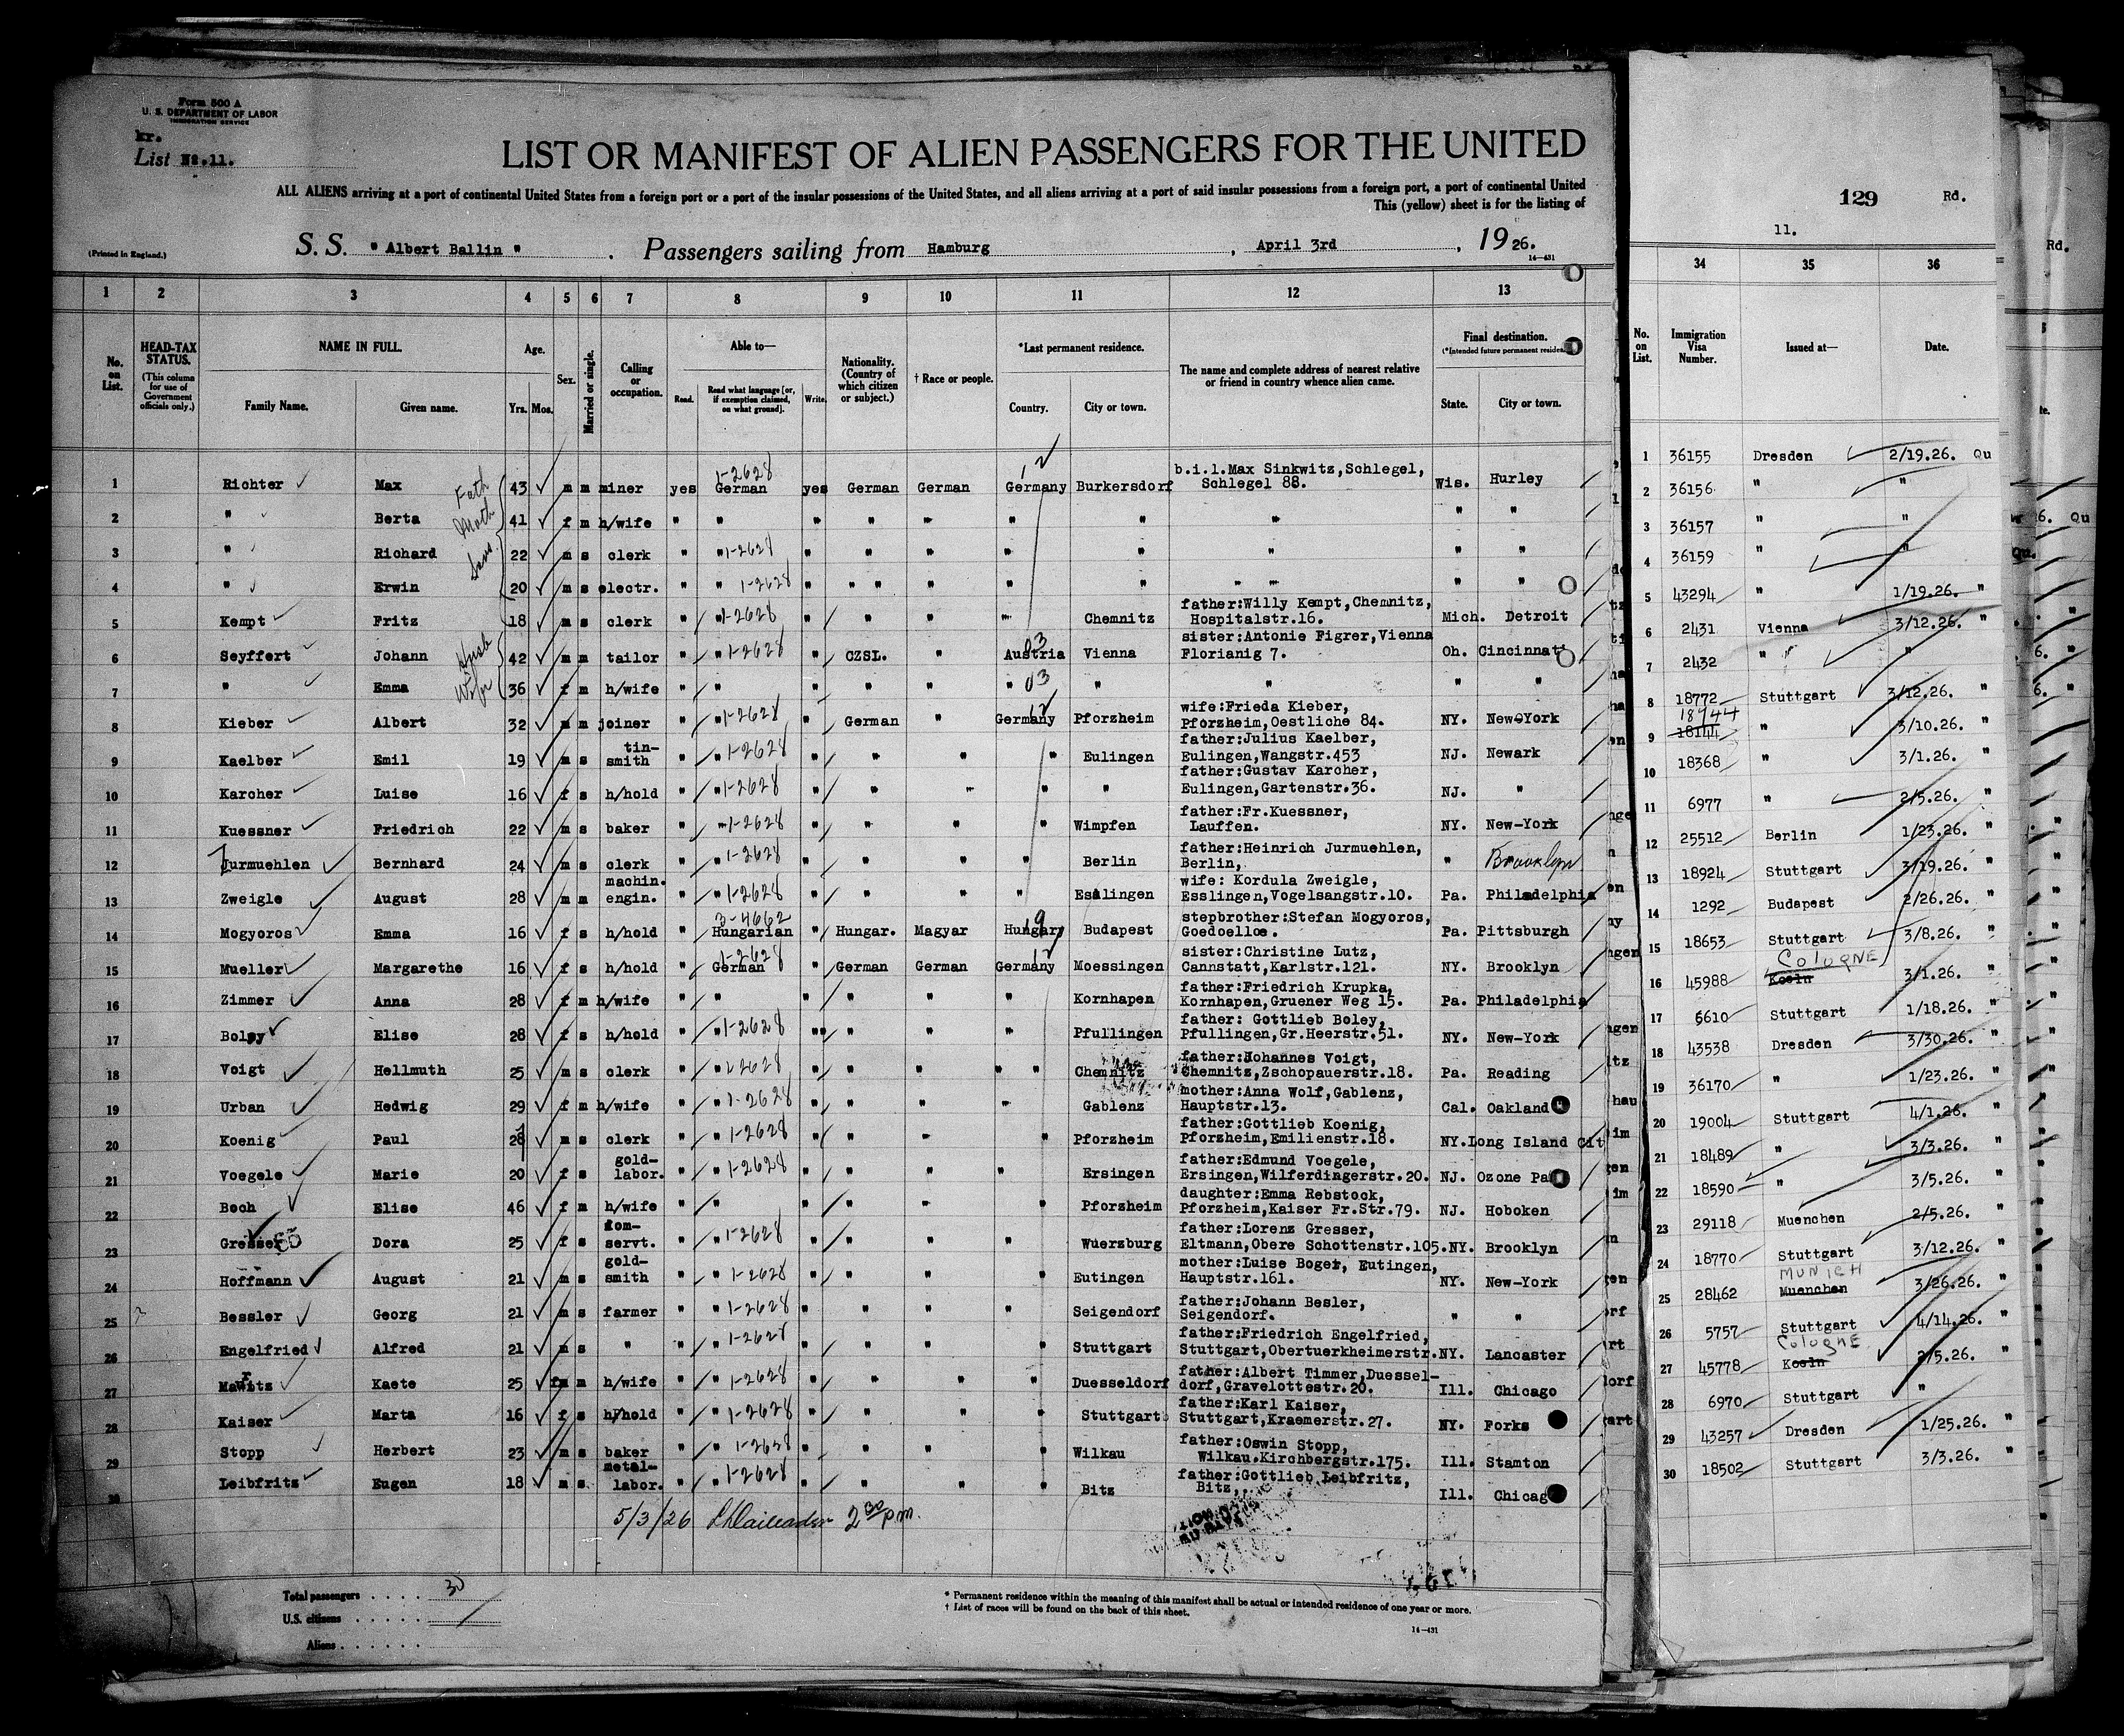 Form 500 A
U. S. DEPARTMENT OF LABOR
IMMIGRATION SERVICE
kr.
List No.11.
LIST OR MANIFEST OF ALIEN PASSENGERS FOR THE UNITED
ALL ALIENS arriving at a port of continental United States from a foreign port or a port of the insular possessions of the United States, and all aliens arriving at a port of said insular possessions from a foreign port, a port of continental United
This (yellow) sheet is for the listing of
(Printed in England.)
S. S. " Albert Ballin " . Passengers sailing from Hamburg , April 3rd , 19 26.
14—431
1 2 3 4 5 6 7 8 9 10 11 12 13
No. on List. HEAD-TAX STATUS. (This column for use of Government officials only.) NAME IN FULL. Family Name. Given name. Age. Yrs. Mos. Sex. Married or single. Calling or occupation. Able to— Read. Read what language [or, if exemption claimed, on what ground]. Write. Nationality. (Country of which citizen or subject.) † Race or people. *Last permanent residence. Country. City or town. The name and complete address of nearest relative or friend in country whence alien came. Final destination. State. City or town.
1 Richter Max Fath 43 m m miner yes German 1-2628 yes German German Germany Burkersdorf b.i.l.Max Sinkwitz,Schlegel, Schlegel 88. Wis. Hurley
2 " Berta Moth 41 f m h/wife " " " " " " " " " "
3 " Richard Sons 22 m s clerk " " 1-2628 " " " " " " " "
4 " Erwin 20 m s electr. " " 1-2628 " " " " " " " " " "
5 Kempt Fritz 18 m s clerk " " 1-2628 " " " " Chemnitz father:Willy Kempt,Chemnitz, Hospitalstr.16. Mich. Detroit
6 Seyffert Johann Husb 42 m m tailor " " 1-2628 " CZSL. " Austria 03 Vienna sister:Antonie Figrer,Vienna Florianig 7. Oh. Cincinnati
7 " Emma Wife 36 f m h/wife " " " " " " 03 " " " "
8 Kieber Albert 32 m m joiner " " 1-2628 " German " Germany 12 Pforzheim wife:Frieda Kieber, Pforzheim,Oestliche 84. NY. New-York
9 Kaelber Emil 19 m s tin-smith " " 1-2628 " " " " Eulingen father:Julius Kaelber, Eulingen,Wangstr.453 NJ. Newark
10 Karcher Luise 16 f s h/hold " " 1-2628 " " " " " father:Gustav Karcher, Eulingen,Gartenstr.36. NJ. "
11 Kuessner Friedrich 22 m s baker " " 1-2628 " " " " Wimpfen father:Fr.Kuessner, Lauffen. NY. New-York
12 Jurmuehlen Bernhard 24 m s clerk " " 1-2628 " " " " Berlin father:Heinrich Jurmuehlen, Berlin, " Brooklyn
13 Zweigle August 28 m m machin. engin. " " 1-2628 " " " " Esslingen wife: Kordula Zweigle, Esslingen,Vogelsangstr.10. Pa. Philadelphia
14 Mogyoros Emma 16 f s h/hold " Hungarian 3-4662 " Hungar. Magyar Hungary 19 Budapest stepbrother:Stefan Mogyoros, Goedoelloe. Pa. Pittsburgh
15 Mueller Margarethe 16 f s h/hold " German 1-2628 " German German Germany 12 Moessingen sister:Christine Lutz, Cannstatt,Karlstr.121. NY. Brooklyn
16 Zimmer Anna 28 f m h/wife " " " " " " Kornhapen father:Friedrich Krupka, Kornhapen,Gruener Weg 15. Pa. Philadelphia
17 Boley Elise 28 f s h/hold " " 1-2628 " " " " Pfullingen father: Gottlieb Boley, Pfullingen,Gr.Heerstr.51. NY. New-York
18 Voigt Hellmuth 25 m s clerk " " 1-2628 " " " " Chemnitz father:Johannes Voigt, Chemnitz,Zschopauerstr.18. Pa. Reading
19 Urban Hedwig 29 f m h/wife " " 1-2628 " " " " Gablenz mother:Anna Wolf,Gablenz, Hauptstr.13. Cal. Oakland
20 Koenig Paul 28 m s clerk " " 1-2628 " " " " Pforzheim father:Gottlieb Koenig, Pforzheim,Emilienstr.18. NY. Long Island Cit
21 Voegele Marie 20 f s gold-labor. " " 1-2628 " " " " Ersingen father:Edmund Voegele, Ersingen,Wilferdingerstr.20. NJ. Ozone Pa
22 Boch Elise 46 f m h/wife " " " " " " Pforzheim daughter:Emma Rebstock, Pforzheim,Kaiser Fr.Str.79. NJ. Hoboken
23 Gresser Dora 25 f s dom-servt. " " 1-2628 " " " " Wuerzburg father:Lorenz Gresser, Eltmann,Obere Schottenstr.105. NY. Brooklyn
24 Hoffmann August 21 m s gold-smith " " 1-2628 " " " " Eutingen mother:Luise Boger, Eutingen, Hauptstr.161. NY. New-York
25 Bessler Georg 21 m s farmer " " 1-2628 " " " " Seigendorf father:Johann Besler, Seigendorf. " "
26 Engelfried Alfred 21 m s " " " 1-2628 " " " " Stuttgart father:Friedrich Engelfried, Stuttgart,Obertuerkheimerstr. NY. Lancaster
27 Kaete 25 m h/wife " " 1-2628 " " " " Duesseldorf father:Albert Timmer,Duessel-dorf,Gravelottestr.20. Ill. Chicago
28 Kaiser Marta 16 f s h/hold " " 1-2628 " " " " Stuttgart father:Karl Kaiser, Stuttgart,Kraemerstr.27. NY. Forks
29 Stopp Herbert 23 m s baker " " 1-2628 " " " " Wilkau father:Oswin Stopp, Wilkau.Kirchbergstr.175. Ill. Stamton
30 Leibfritz Eugen 18 m s metal-labor. " " 1-2628 " " " " Bitz father:Gottlieb Leibfritz, Bitz, Ill. Chicag
5/3/26 2 30 p.m.
Total passengers . . . . 30
U.S. citizens . . . . .
Aliens . . . . . .
* Permanent residence within the meaning of this manifest shall be actual or intended residence of one year or more.
† List of races will be found on the back of this sheet.
14—431
129 Rd.
11.
34 35 36
No. on List. Immigration Visa Number. Issued at— Date.
1 36155 Dresden 2/19.26. Qu
2 36156 " "
3 36157 " "
4 36159 " "
5 43294 " 1/19.26. "
6 2431 Vienna 3/12.26. "
7 2432 " "
8 18772 Stuttgart 3/12.26. "
9 18944 18144 " 3/10.26. "
10 18368 " 3/1.26. "
11 6977 " 2/5.26. "
12 25512 Berlin 1/23.26. "
13 18924 Stuttgart 3/19.26. "
14 1292 Budapest 2/26.26. "
15 18653 Stuttgart 3/8.26. "
16 45988 COLOGNE Koeln 3/1.26. "
17 6610 Stuttgart 1/18.26. "
18 43538 Dresden 3/30.26. "
19 36170 " 1/23.26. "
20 19004 Stuttgart 4/1.26. "
21 18489 " 3/3.26. "
22 18590 " 3/5.26. "
23 29118 Muenchen 2/5.26. "
24 18770 Stuttgart 3/12.26. "
25 28462 MUNICH Muenchen 3/26.26. "
26 5757 Stuttgart 4/14.26. "
27 45778 COLOGNE Koeln 2/5.26. "
28 6970 Stuttgart " "
29 43257 Dresden 1/25.26. "
30 18502 Stuttgart 3/3.26.
Rd.